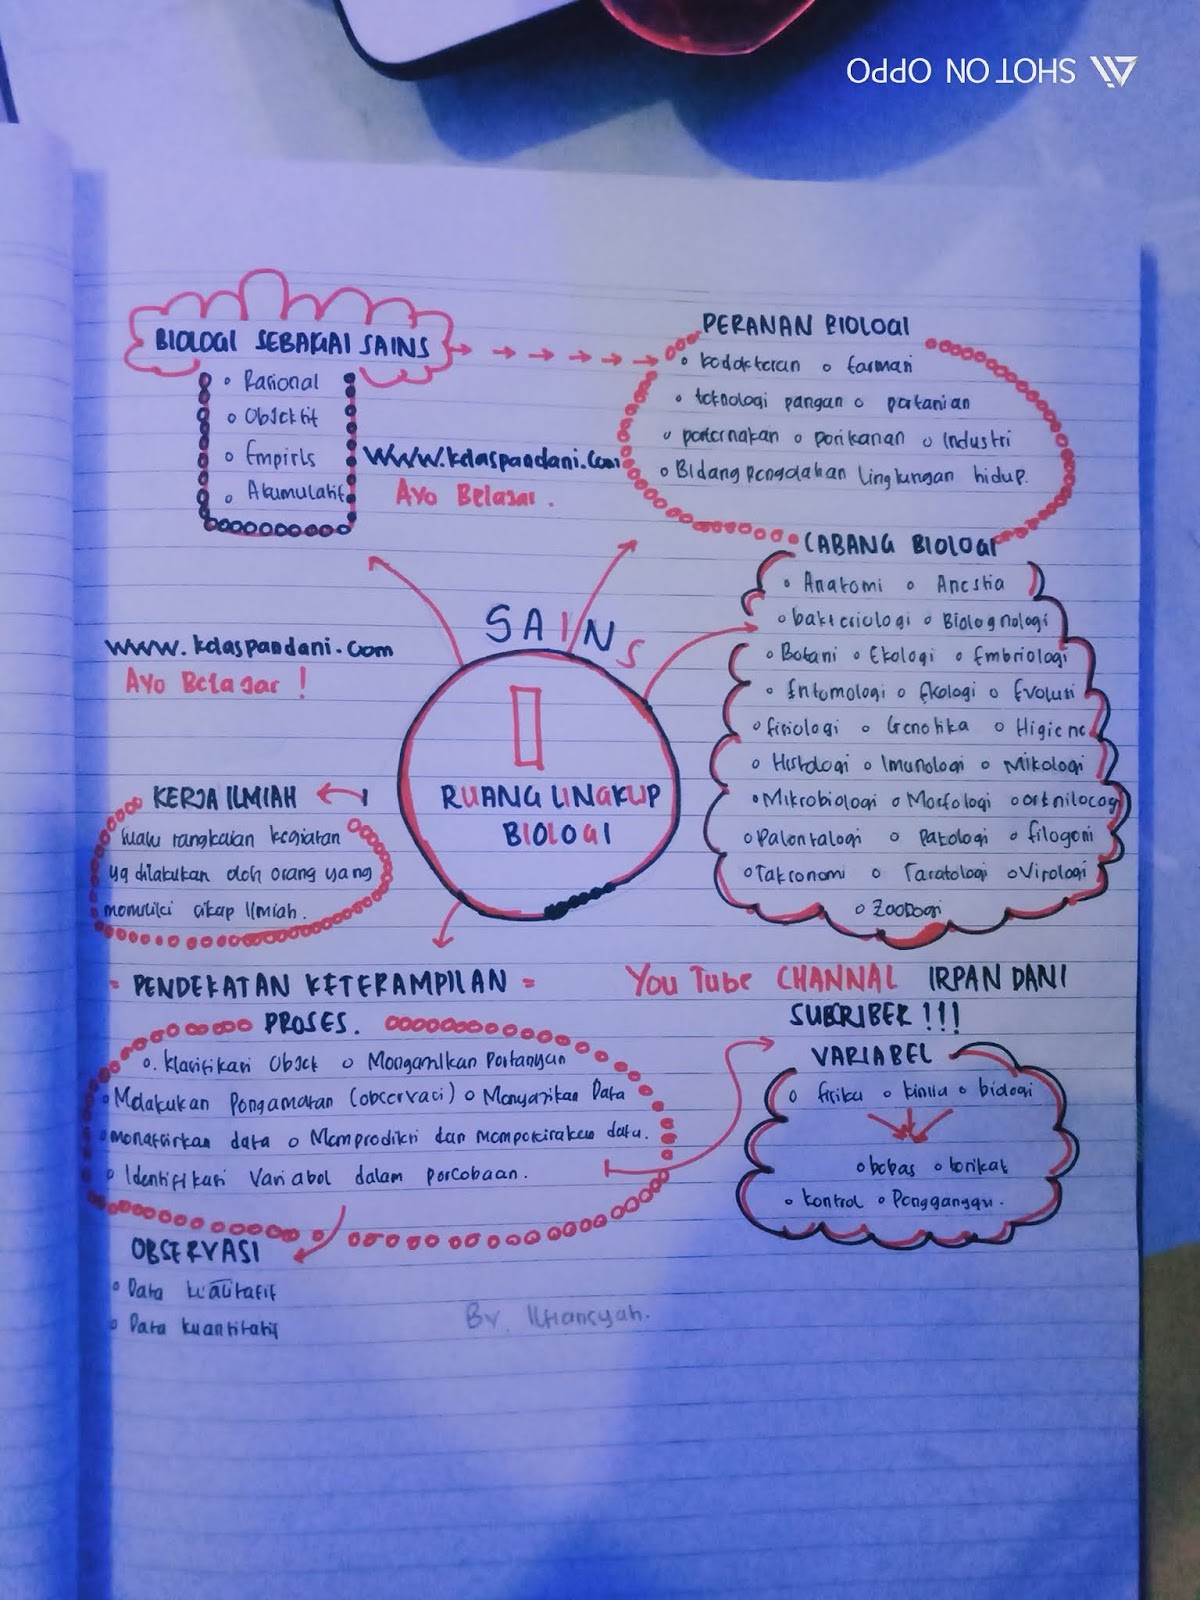 SHOT ON OPPO
BIOLOGI SEBAGAI SAINS
Rasional
Objektif
Empiris
Akumulatif
www.kelaspandani.com
Ayo Belajar.
PERANAN BIOLOGI
kedokteran farmasi
teknologi pangan pertanian
peternakan perikanan Industri
Bidang pengolahan lingkungan hidup.
SAINS
1
RUANG LINGKUP
BIOLOGI
www.kelaspandani.com
Ayo Belajar!
CABANG BIOLOGI
Anatomi
bakteriologi
Botani Ekologi Embriologi
Entomologi Ekologi Evolusi
fisiologi Genetika Higiene
Histologi Imunologi Mikologi
Mikrobiologi Morfologi
Patologi
Virologi
KERJA ILMIAH
Suatu rangkaian kegiatan
yg dilakukan oleh orang yang
memiliki sikap Ilmiah.
= PENDEKATAN KETERAMPILAN =
PROSES.
Klasifikasi Objek
Melakukan Pengamatan (observasi) Menyajikan Data
menafsirkan data
Identifikasi Variabel dalam percobaan.
YouTube CHANNAL IRPAN DANI
SUBRIBER!!!
VARIABEL
fisika kimia biologi
bebas terikat
kontrol Pengganggu.
OBSERVASI
Data kualitatif
Data kuantitatif